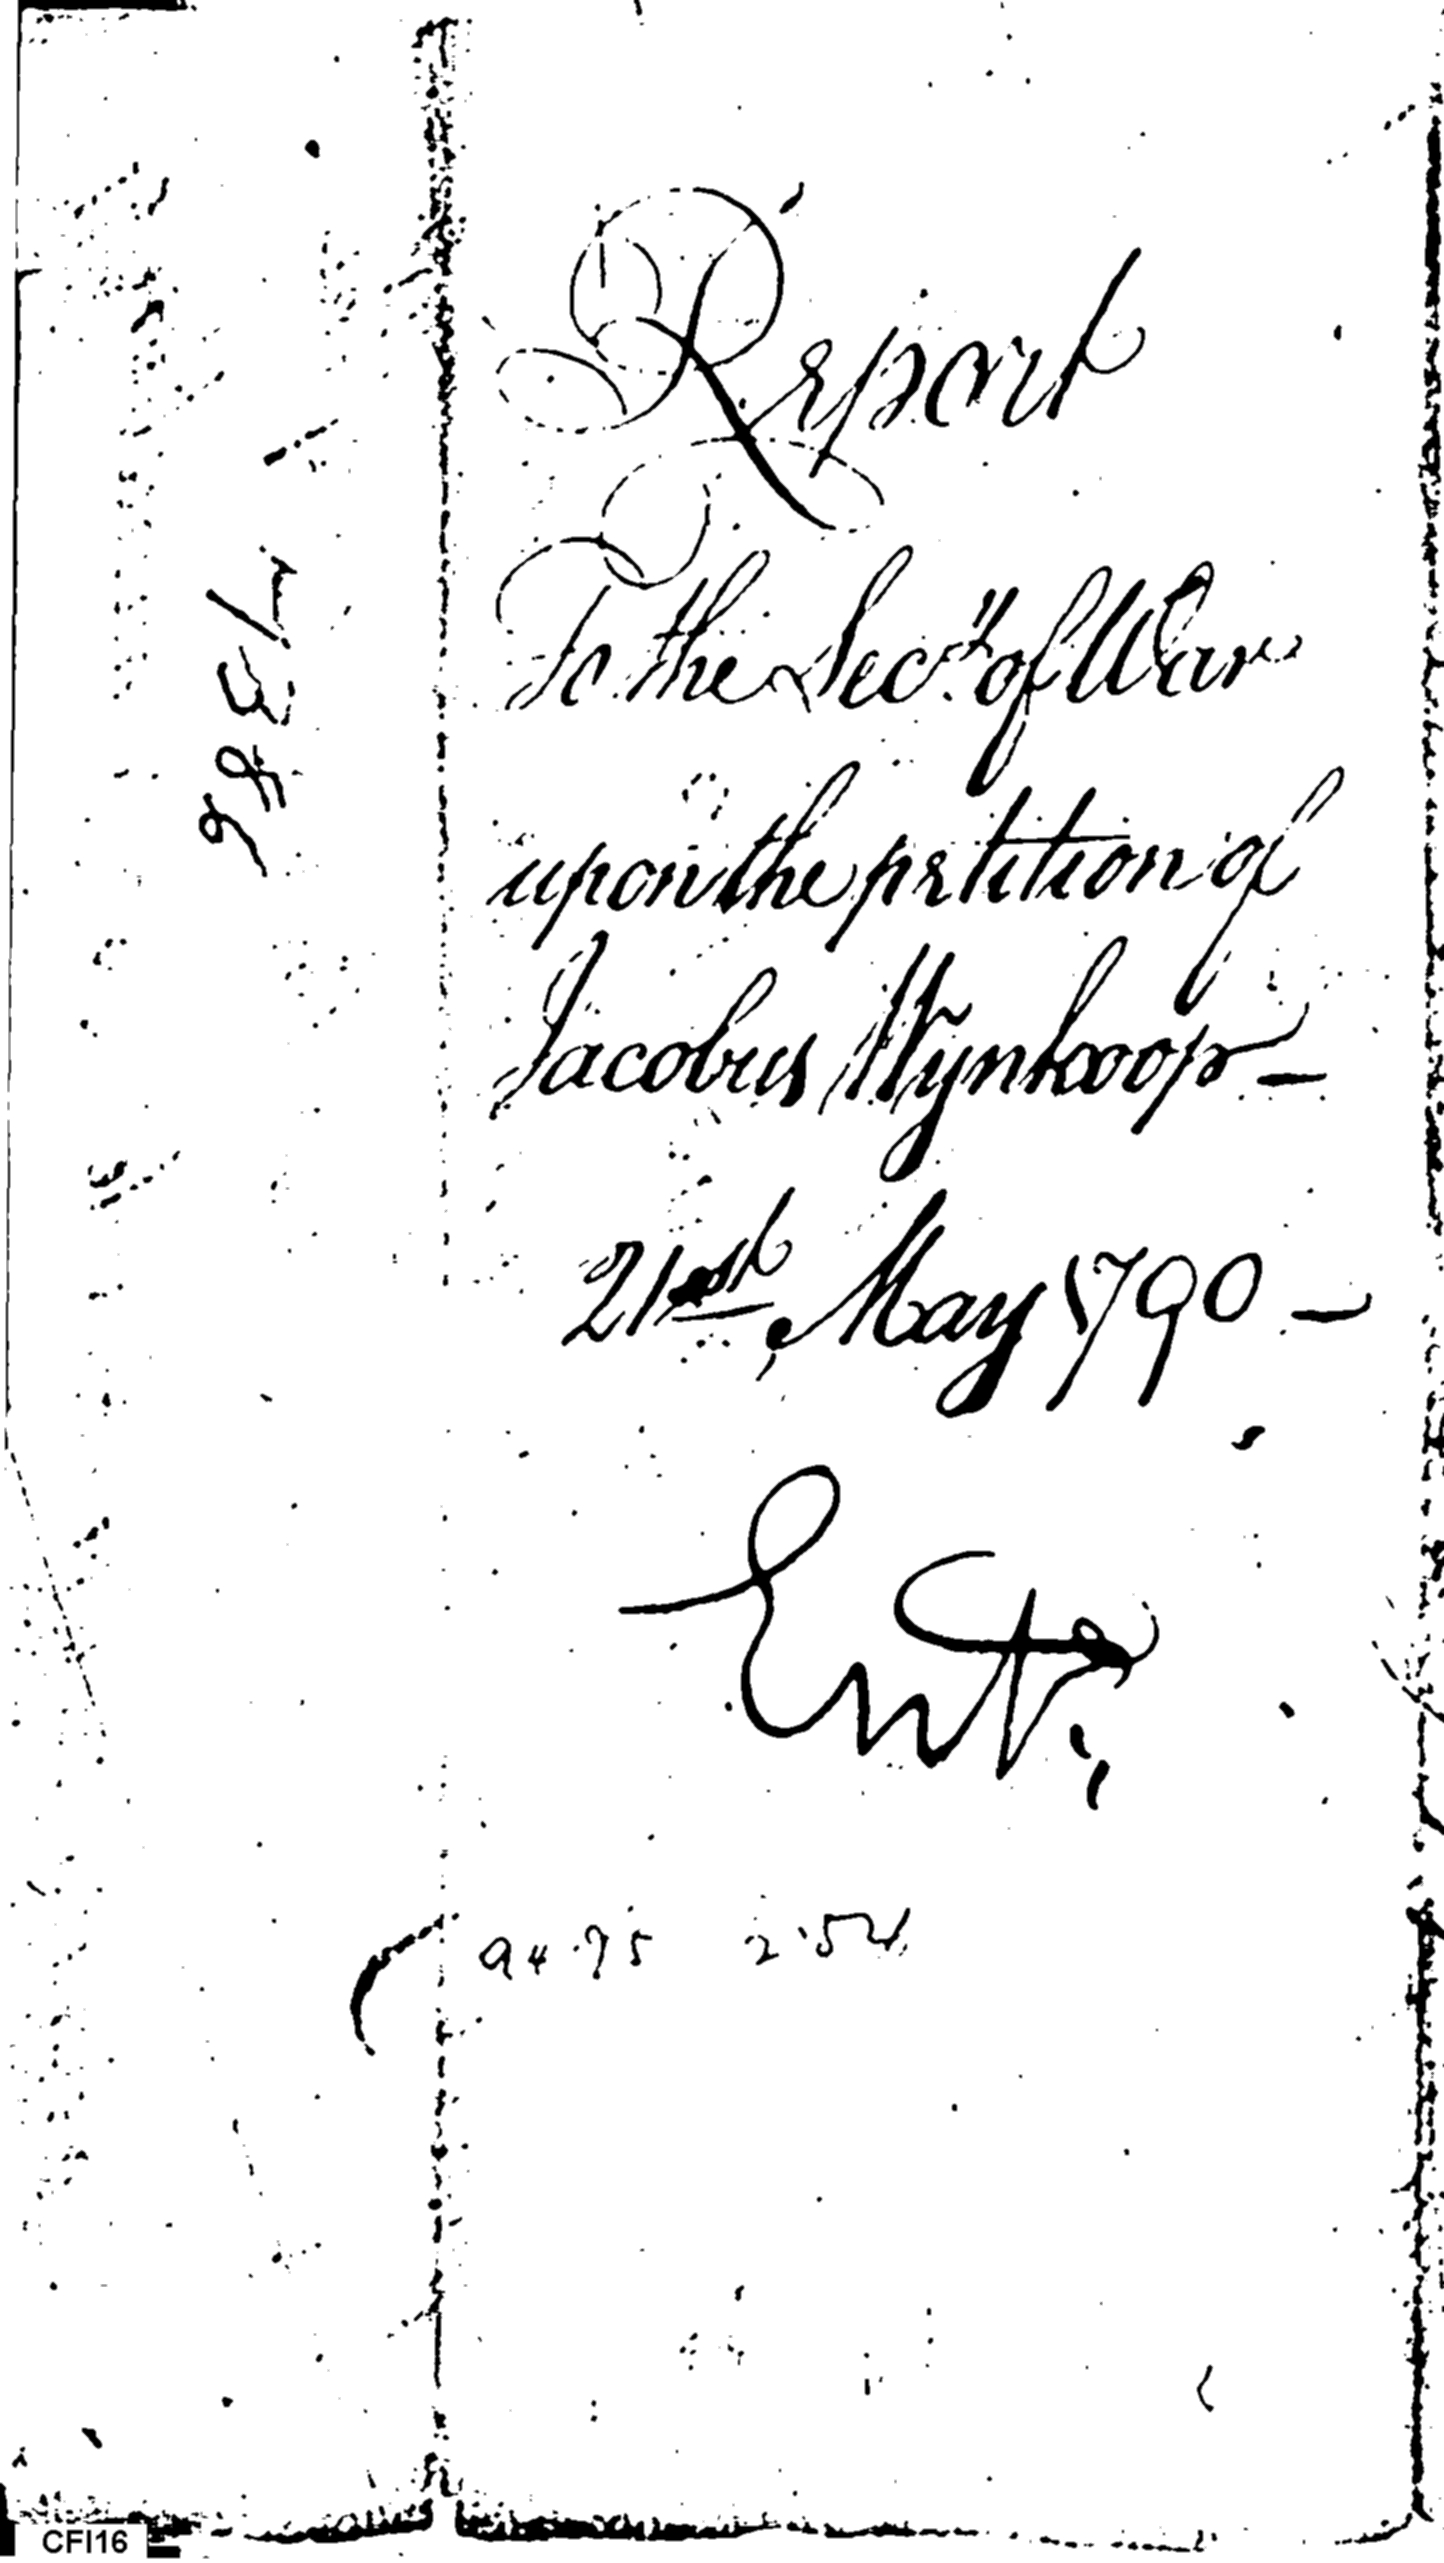 Report
To the Secry of War
upon the petition of
Jacobus Wynkoop —
21st May 1790 —
Entd
94.75 2.52
CFI16